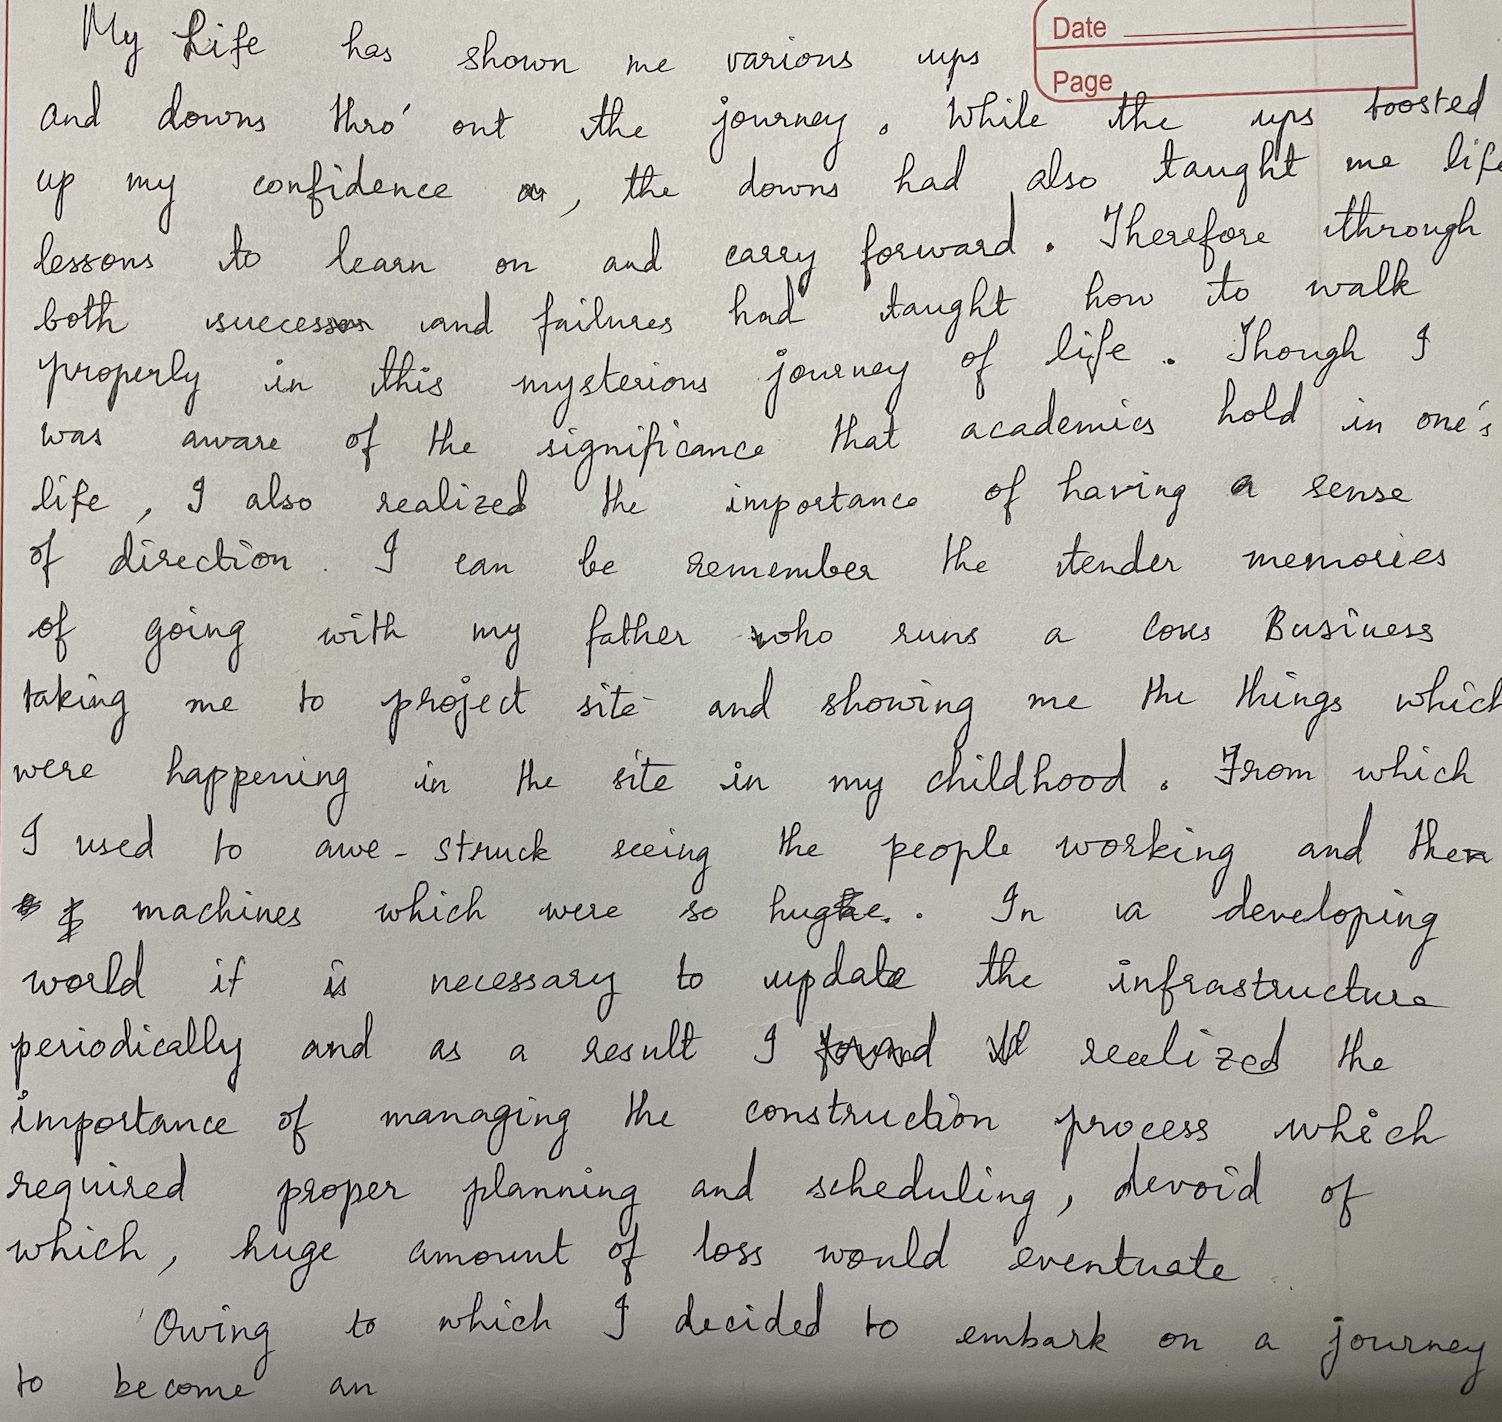 My Life has shown me various ups
Date
Page
and downs thro' out the journey. While the ups boosted
up my confidence, the downs had also taught me life
lessons to learn on and carry forward. Therefore through
both success and failures had taught how to walk
properly in this mysterious journey of life. Though I
was aware of the significance that academics hold in one's
life, I also realized the importance of having a sense
of direction. I can be remember the tender memories
of going with my father who runs a cons Business
taking me to project site and showing me the things which
were happening in the site in my childhood. From which
I used to awe-struck seeing the people working and the
machines which were so huge. In a developing
world it is necessary to update the infrastructure
periodically and as a result I realized the
importance of managing the construction process which
required proper planning and scheduling, devoid of
which, huge amount of loss would eventuate
Owing to which I decided to embark on a journey
to become an